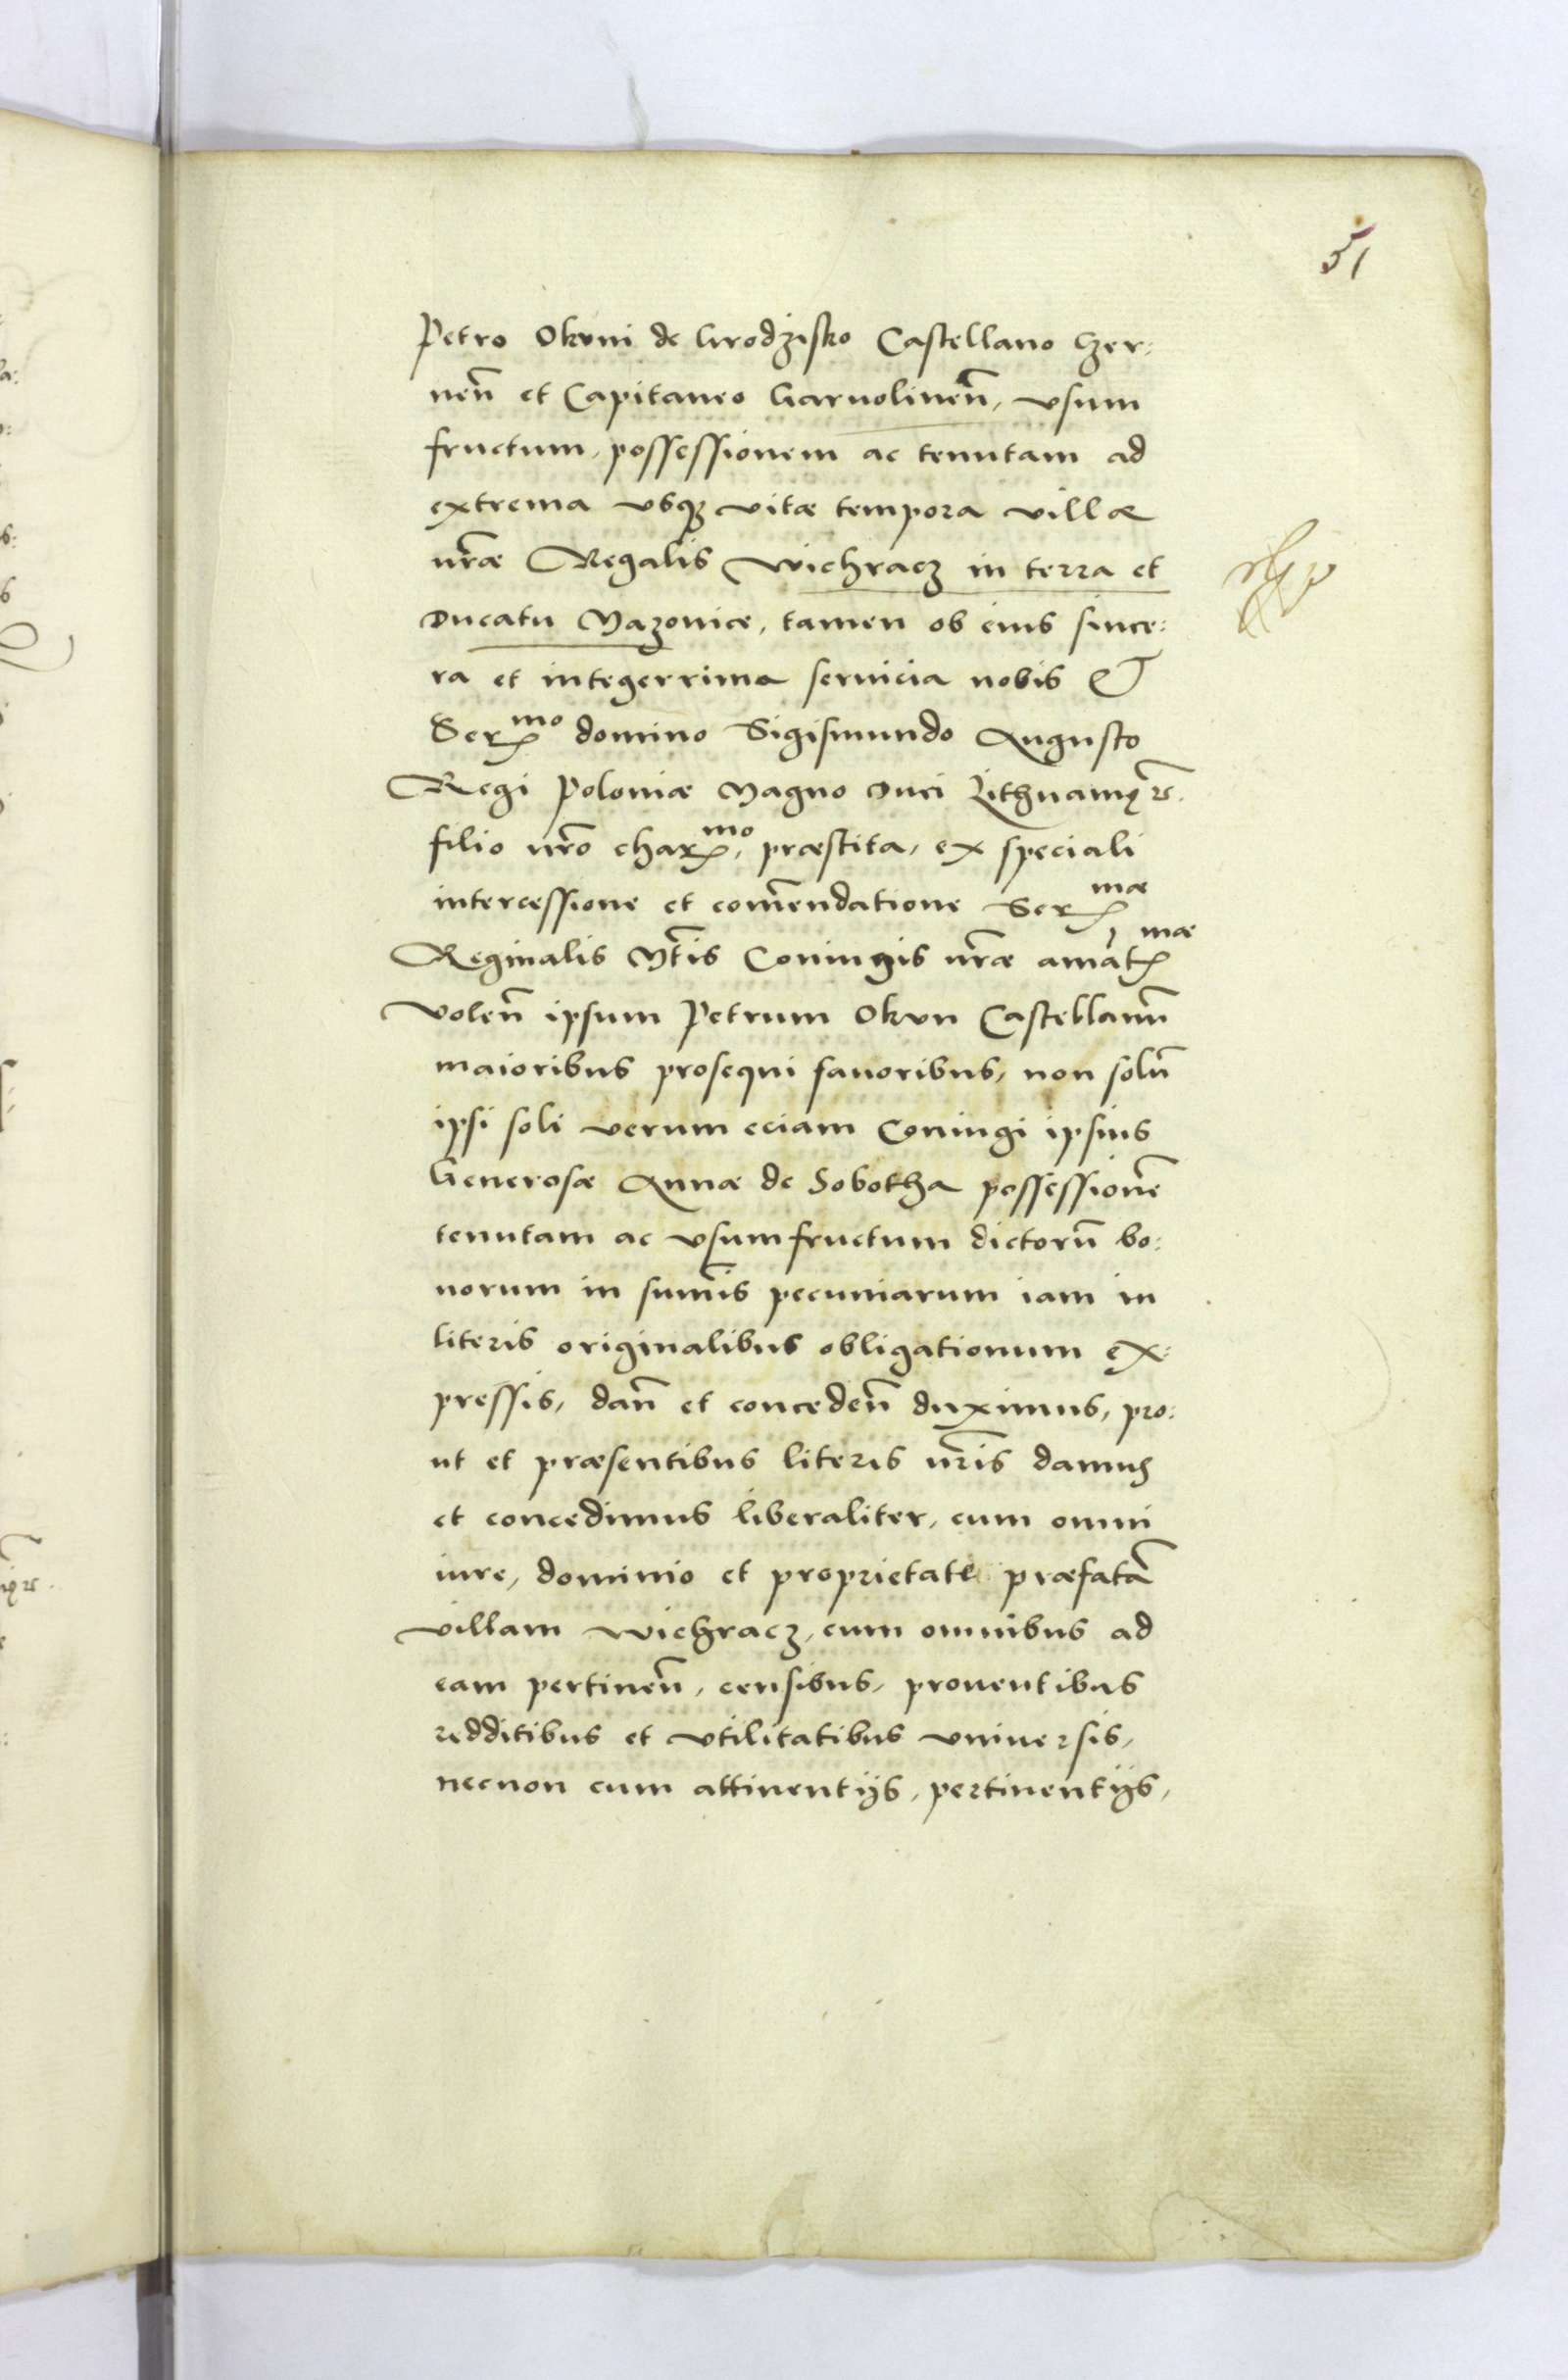 51
Petro Okuni de Grodzisko Castellano Czer:
neñ et Capitaneo Garuolineñ, vsum
fructum, possessionem ac tenutam ad
extrema vsq; vitæ tempora villæ
nr̃æ Regalis Wichracz in terra et
Ducatu Mazouiæ, tamen ob eius since:
ra et integerrima seruicia nobis &
Ser^mo domino Sigismundo Augusto
Regi Poloniæ Magno Duci Lithuaniȩ ꝛc.
filio nr̃o char^mo, præstita, ex speciali
intercessione et com̃endatione Ser^mæ
Reginalis Mt̃is Coniugis nr̃æ amat^mæ
Voleñ ipsum Petrum Okun Castellanũ
maioribus prosequi fauoribus, non solũ
ipsi soli verum eciam Coniugi ipsius
Generosæ Annæ de Sobotha possessionẽ
tenutam ac vsumfructum dictorũ bo:
norum in sum̃is pecuniarum iam in
literis originalibus obligationum ex:
pressis, dañ et concedeñ duximus, pro:
ut et præsentibus literis nr̃is damus
et concedimus liberaliter, cum omni
iure, dominio et proprietate præfatã
villam Wichracz, cum omnibus ad
eam pertineñ, censibus, prouentibus
redditibus et vtilitatibus vniuersis,
necnon cum attinentijs, pertinentijs,